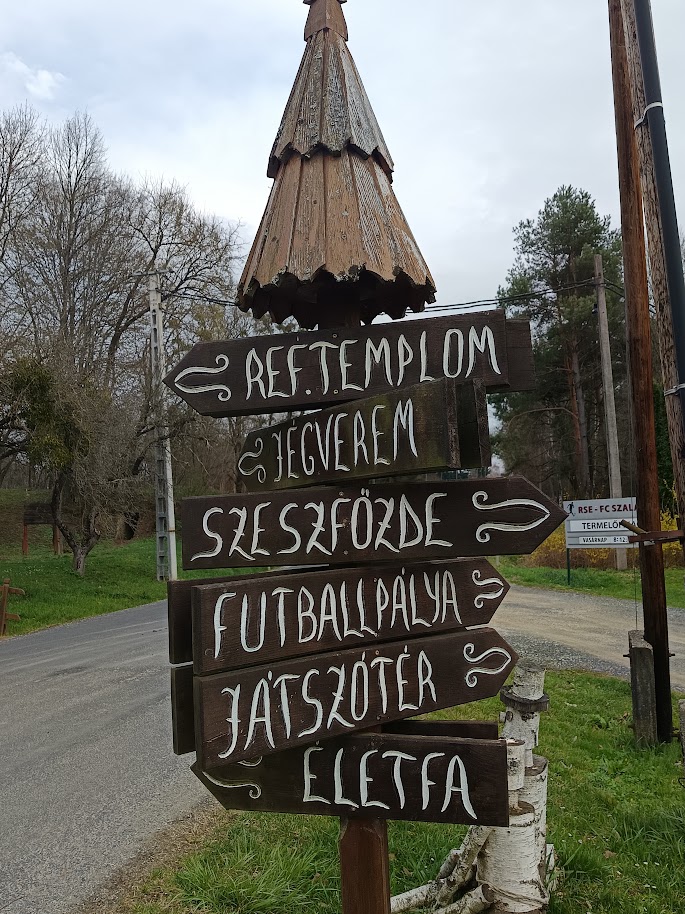 REF.TEMPLOM
JÉGVEREM
SZESZFŐZDE
FUTBALLPÁLYA
JÁTSZÓTÉR
ÉLETFA
RSE - FC SZALA
VASÁRNAP 8-12